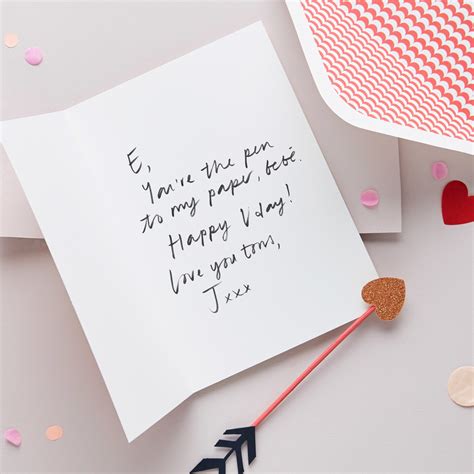 E,
You're the pen
to my paper, bébé.
Happy V day!
Love you tons,
Jxxx